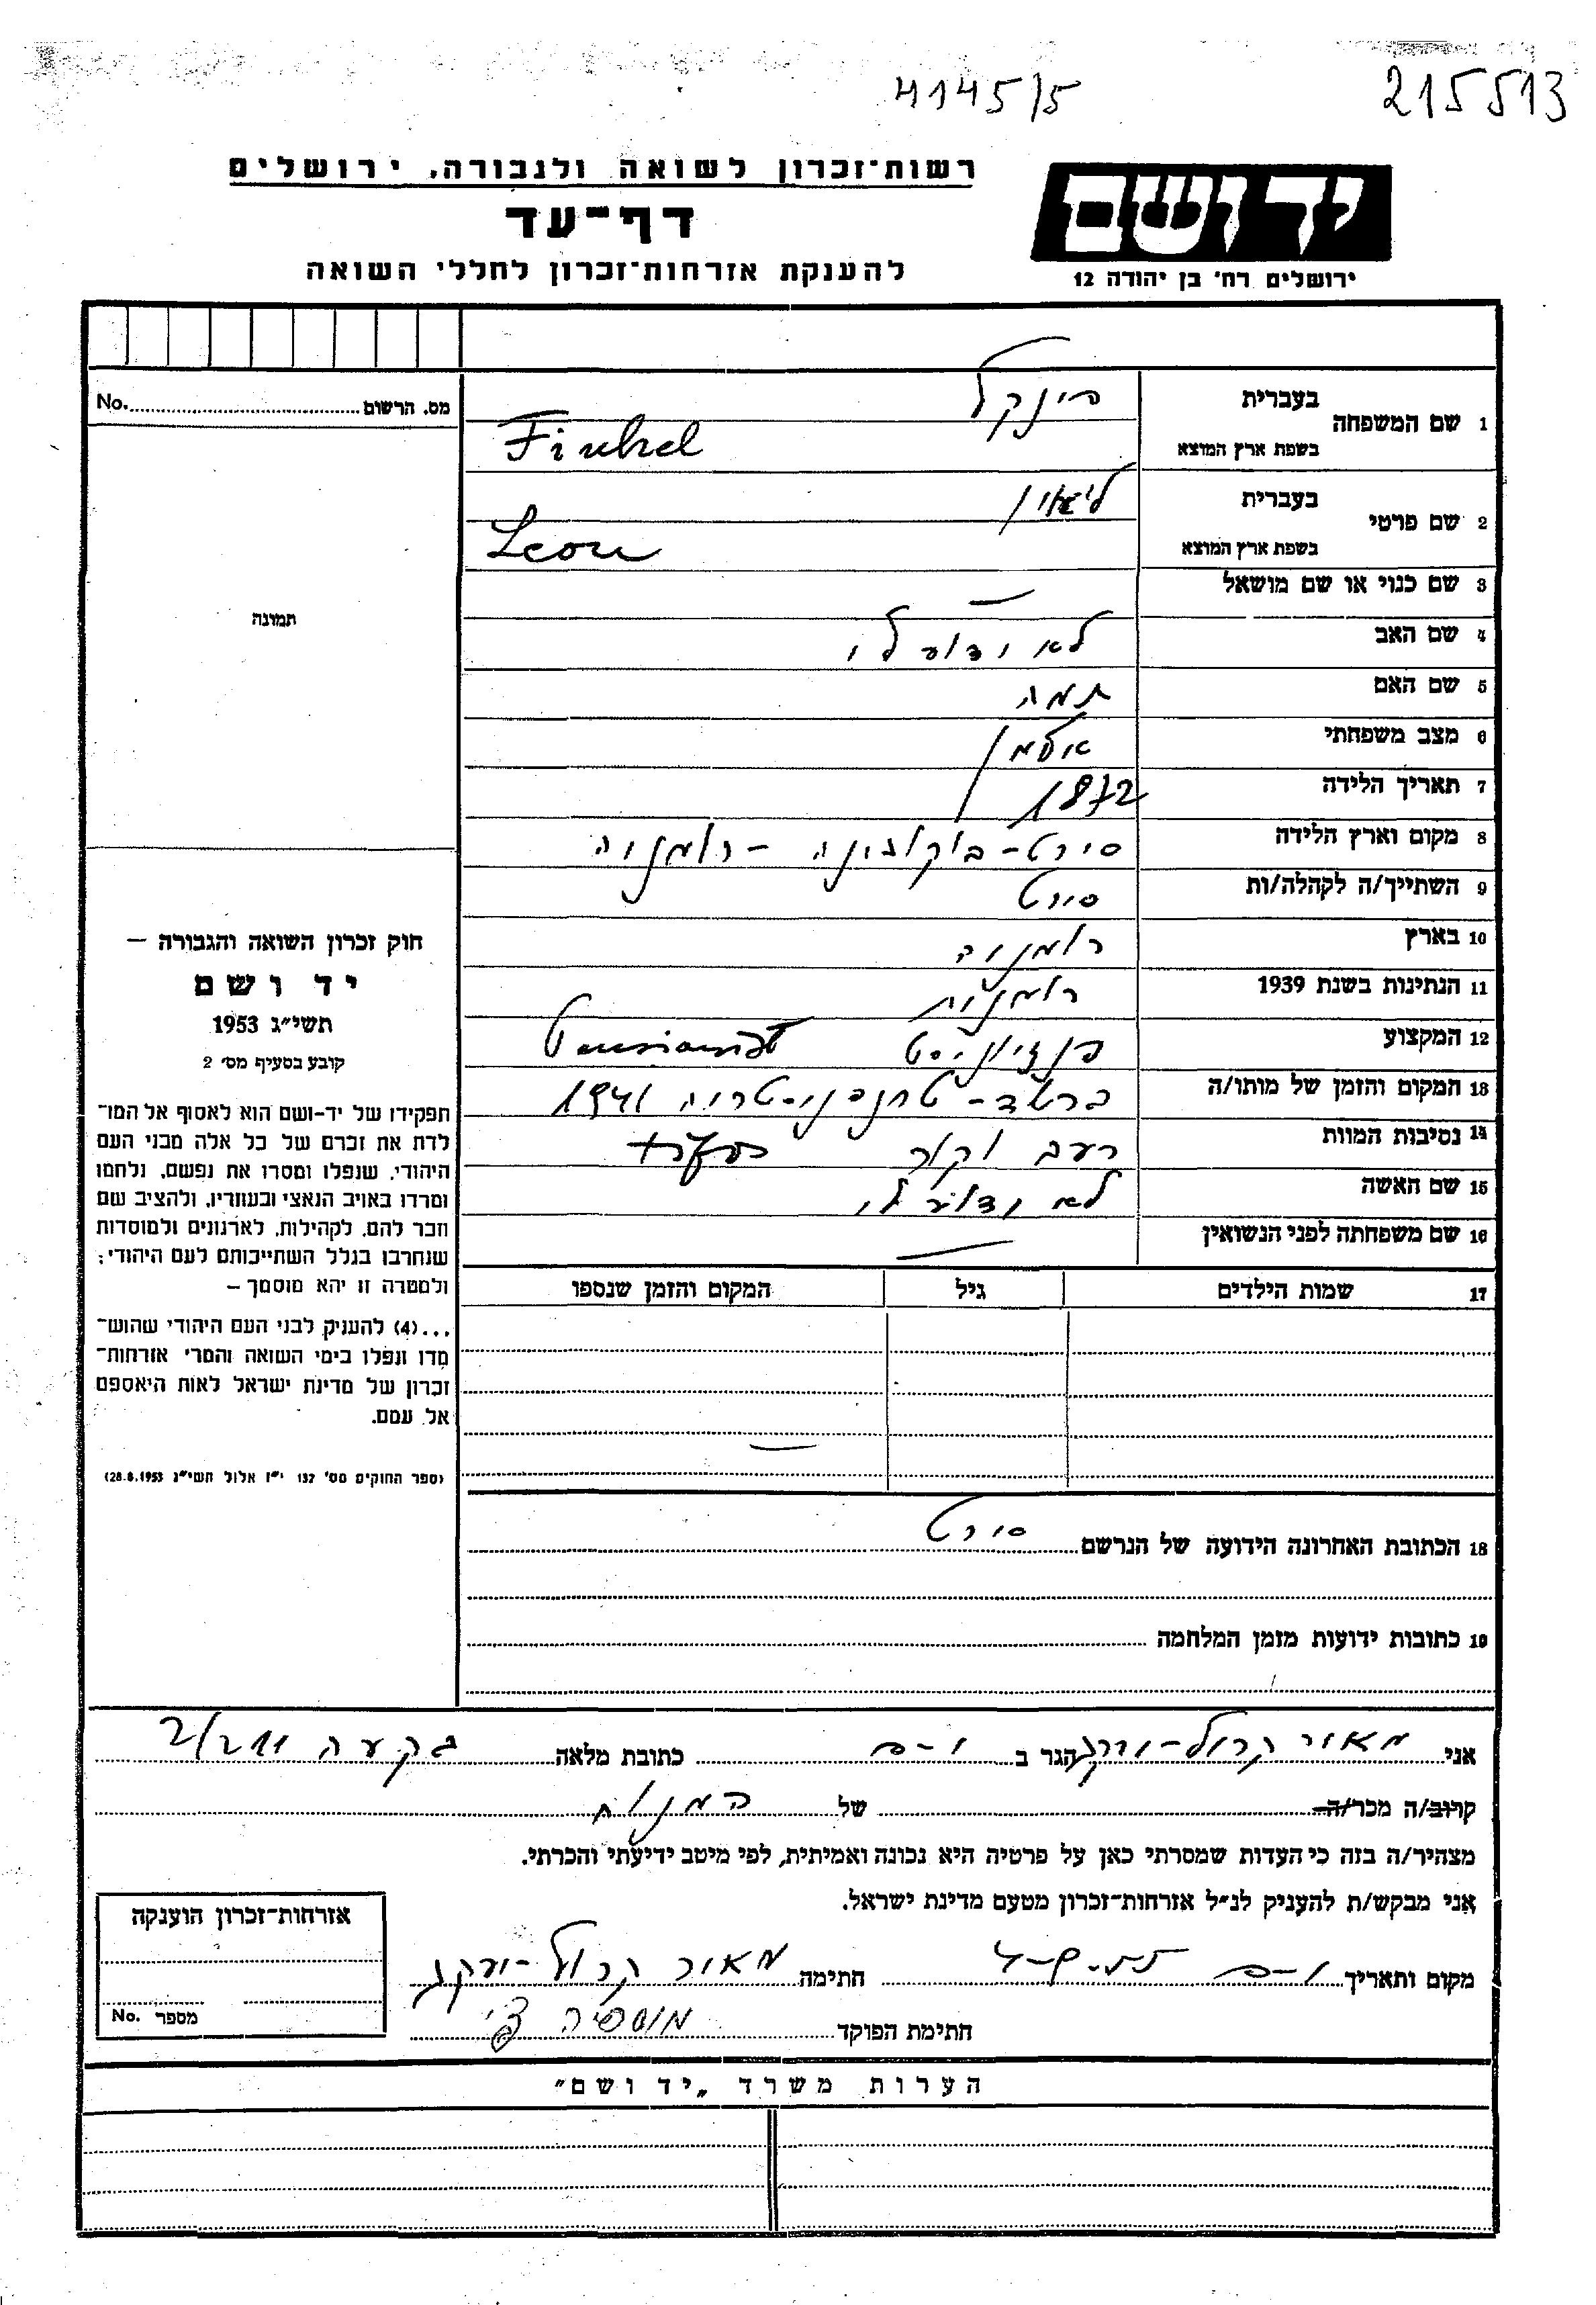 4145/5
215513
רשות־זכרון לשואה ולגבורה, ירושלים
דף־עד
להענקת אזרחות־זכרון לחללי השואה
יד ושם
ירושלים רח' בן יהודה 12
מס. הרשום No.
1 שם המשפחה
בעברית פינקל
בשפת ארץ המוצא Finkel
2 שם פרטי
בעברית ליאון
בשפת ארץ המוצא Leon
3 שם כנוי או שם מושאל —
4 שם האב לא ידוע לי
5 שם האם
6 מצב משפחתי אלמן
7 תאריך הלידה 1872
8 מקום וארץ הלידה סירט - בוקובינה - רומניה
9 השתייך/ה לקהלה/ות סירט
10 בארץ רומניה
11 הנתינות בשנת 1939 רומנית
12 המקצוע פנזיוניסט Pensionist
13 המקום והזמן של מותו/ה ברשד - טרנסניסטריה 1941
14 נסיבות המוות רעב וקור
15 שם האשה לא ידוע לי
16 שם משפחתה לפני הנשואין —
17 שמות הילדים גיל המקום והזמן שנספו
18 הכתובת האחרונה הידועה של הנרשם סירט
19 כתובות ידועות מזמן המלחמה
תמונה
חוק זכרון השואה והגבורה —
יד ושם
תשי״ג 1953
קובע בסעיף מס' 2
תפקידו של יד-ושם הוא לאסוף אל המו־
לדת את זכרם של כל אלה מבני העם
היהודי, שנפלו ומסרו את נפשם, נלחמו
ומרדו באויב הנאצי ובעוזריו, ולהציב שם
וזכר להם, לקהילות, לארגונים ולמוסדות
שנחרבו בגלל השתייכותם לעם היהודי;
ולמטרה זו יהא מוסמך —
...(4) להעניק לבני העם היהודי שהוש־
מדו ונפלו בימי השואה והמרי אזרחות־
זכרון של מדינת ישראל לאות היאספם
אל עמם.
(ספר החוקים מס' 132 י״ז אלול תשי״ג 28.8.1953)
אני מאור קרול- הגר ב י-ם כתובת מלאה בקעה 2/211
קרוב/ה מכר/ה של המנוח
מצהיר/ה בזה כי העדות שמסרתי כאן על פרטיה היא נכונה ואמיתית, לפי מיטב ידיעתי והכרתי.
אני מבקש/ת להעניק לנ״ל אזרחות־זכרון מטעם מדינת ישראל.
מקום ותאריך י-ם חתימה מאור קרול-
חתימת הפוקד
אזרחות־זכרון הוענקה
מספר No.
הערות משרד „יד ושם״